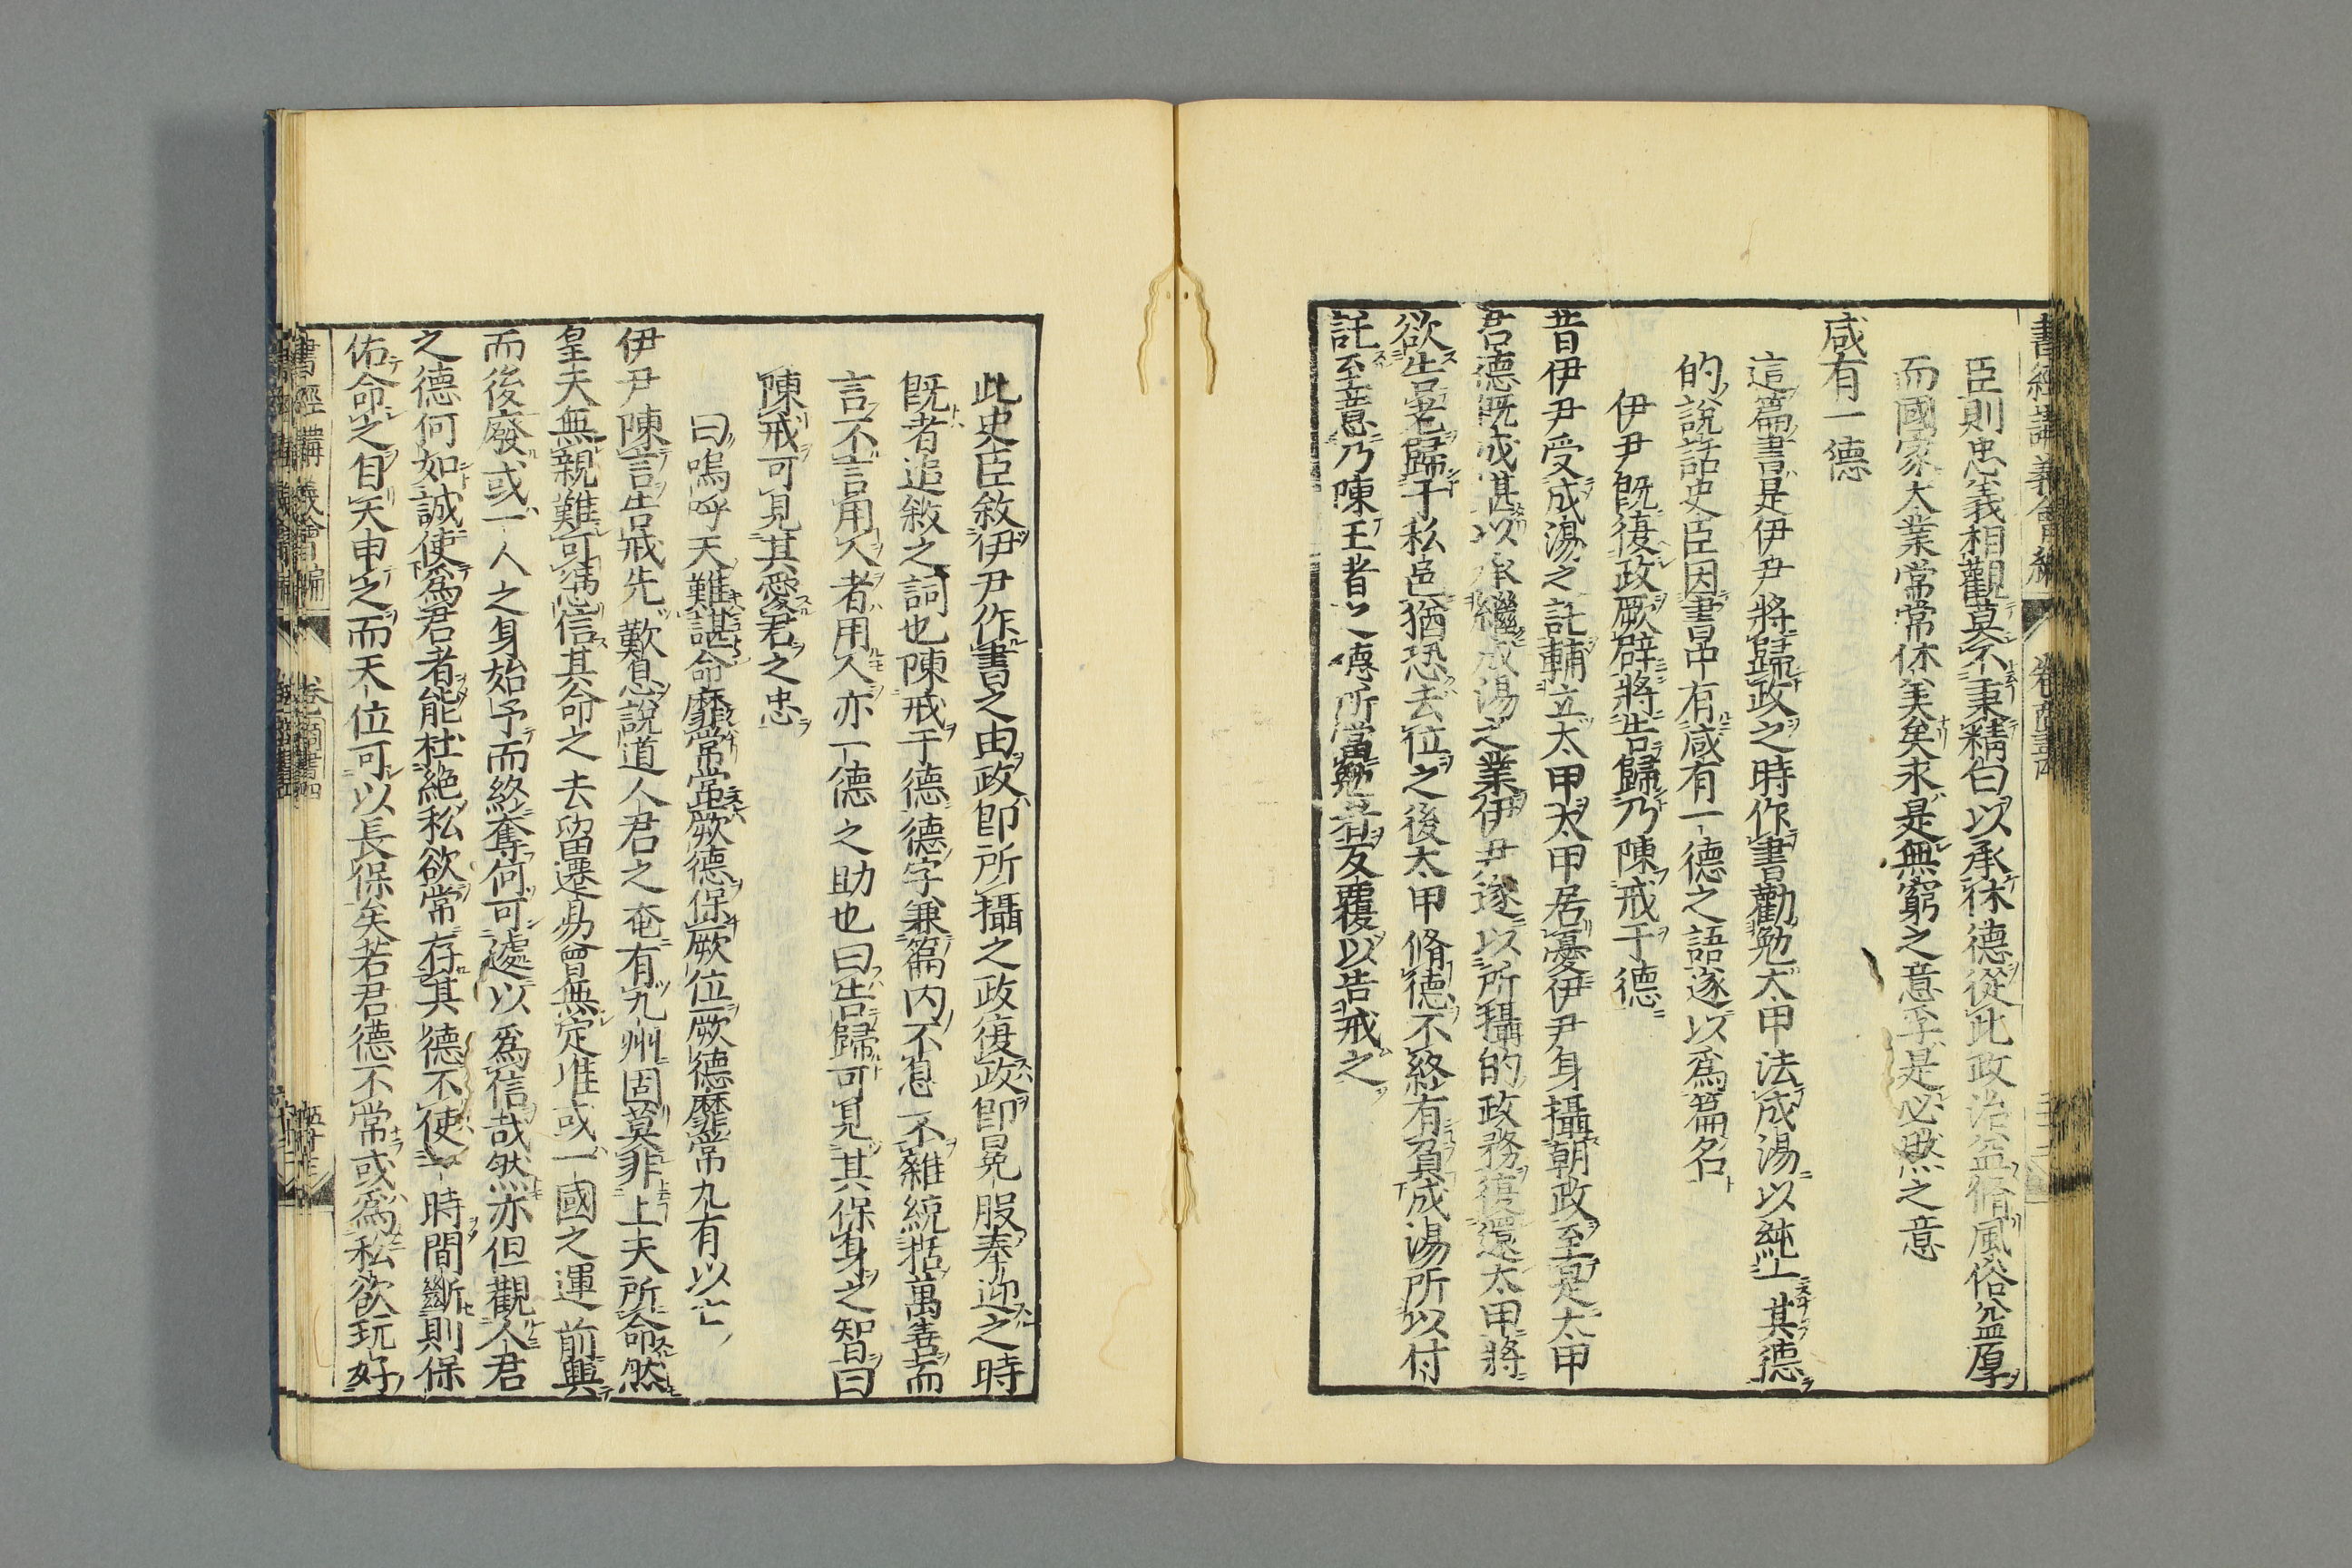 書經講義會編 卷 商書四
臣則忠義相觀莫不秉精白以承休德從此政治益脩風俗益厚
而國家大業常常休美矣求是無窮之意孚是必然之意
咸有一德
這篇書是伊尹將歸政之時作書勸勉太甲法成湯以純一其德
的說話史臣因書中有咸有一德之語遂以爲篇名
伊尹旣復政厥辟將告歸乃陳戒于德
昔伊尹受成湯之託輔立太甲太甲居憂伊尹身攝朝政至是太甲
君德旣成堪以承繼成湯之業伊尹遂以所攝的政務復還太甲將
欲告老歸于私邑猶恐去位之後太甲脩德不終有負成湯所以付
託至意乃陳王者之德所當勉者反覆以告戒之
此史臣敘伊尹作書之由政卽所攝之政復政卽冕服奉迎之時
旣者追敘之詞也陳戒于德德字兼篇內不息不雜統括萬善而
言不言用人者用人亦一德之助也曰告歸可見其保身之智曰
陳戒可見其愛君之忠
曰嗚呼天難諶命靡常常厥德保厥位厥德靡常九有以亡
伊尹陳言告戒先歎息說道人君之奄有九州固莫非上天所命然
皇天無親難可憑信其命之去留遷易曾無定准或一國之運前興
而後廢或一人之身始予而終奪何可遽以爲信哉然亦但觀人君
之德何如誠使爲君者能杜絕私欲常存其德不使一時間斷則保
佑命之自天申之而天位可以長保矣若君德不常或爲私欲玩好
書經講義會編 卷 商書四